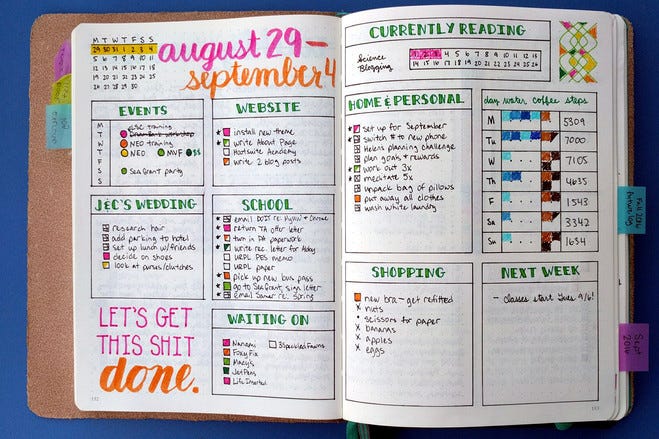 M T W T F S S
29 30 31 1 2 3 4
5 6 7 8 9 10 11
12 13 14 15 16 17 18
19 20 21 22 23 24 25
26 27 28 29 30
august 29 –
september 4
EVENTS
M
T
W
T
F
S
S
LSC training
NEO training
NEO MVF $$
Sea Grant party
WEBSITE
install new theme
write About Page
Hootsuite Academy
write 2 blog posts
J&C'S WEDDING
research hair
add parking to hotel
set up lunch w/friends
decide on shoes
look at purses/clutches
SCHOOL
email DOIT re:
return TA offer letter
turn in PA paperwork
write rec. letter for Abby
URPL PES memo
URPL paper
pick up new bus pass
go to Sea Grant, sign letter
email Samer re: Spring
LET'S GET
THIS SHIT
done.
WAITING ON
Nanami
3 Speckled Fawns
Foxy Fix
Macy's
JetPens
Life Inserted
CURRENTLY READING
Science
Blogging
1 2 3 4 5 6 7 8 9 10 11 12 13
14 15 16 17 18 19 20 21 22 23 24 25 26
HOME & PERSONAL
set up for September
switch # to new phone
Helens planning challenge
plan goals & rewards
work out 3x
meditate 5x
unpack bag of pillows
put away all clothes
wash white laundry
day water coffee steps
M 5309
Tu 7000
W 7105
Th 4635
F 1543
Sa 3342
Su 1634
SHOPPING
new bra – get refitted
nuts
scissors for paper
bananas
apples
eggs
NEXT WEEK
– classes start Tues 9/6!
Fall 2016
Sept
2016